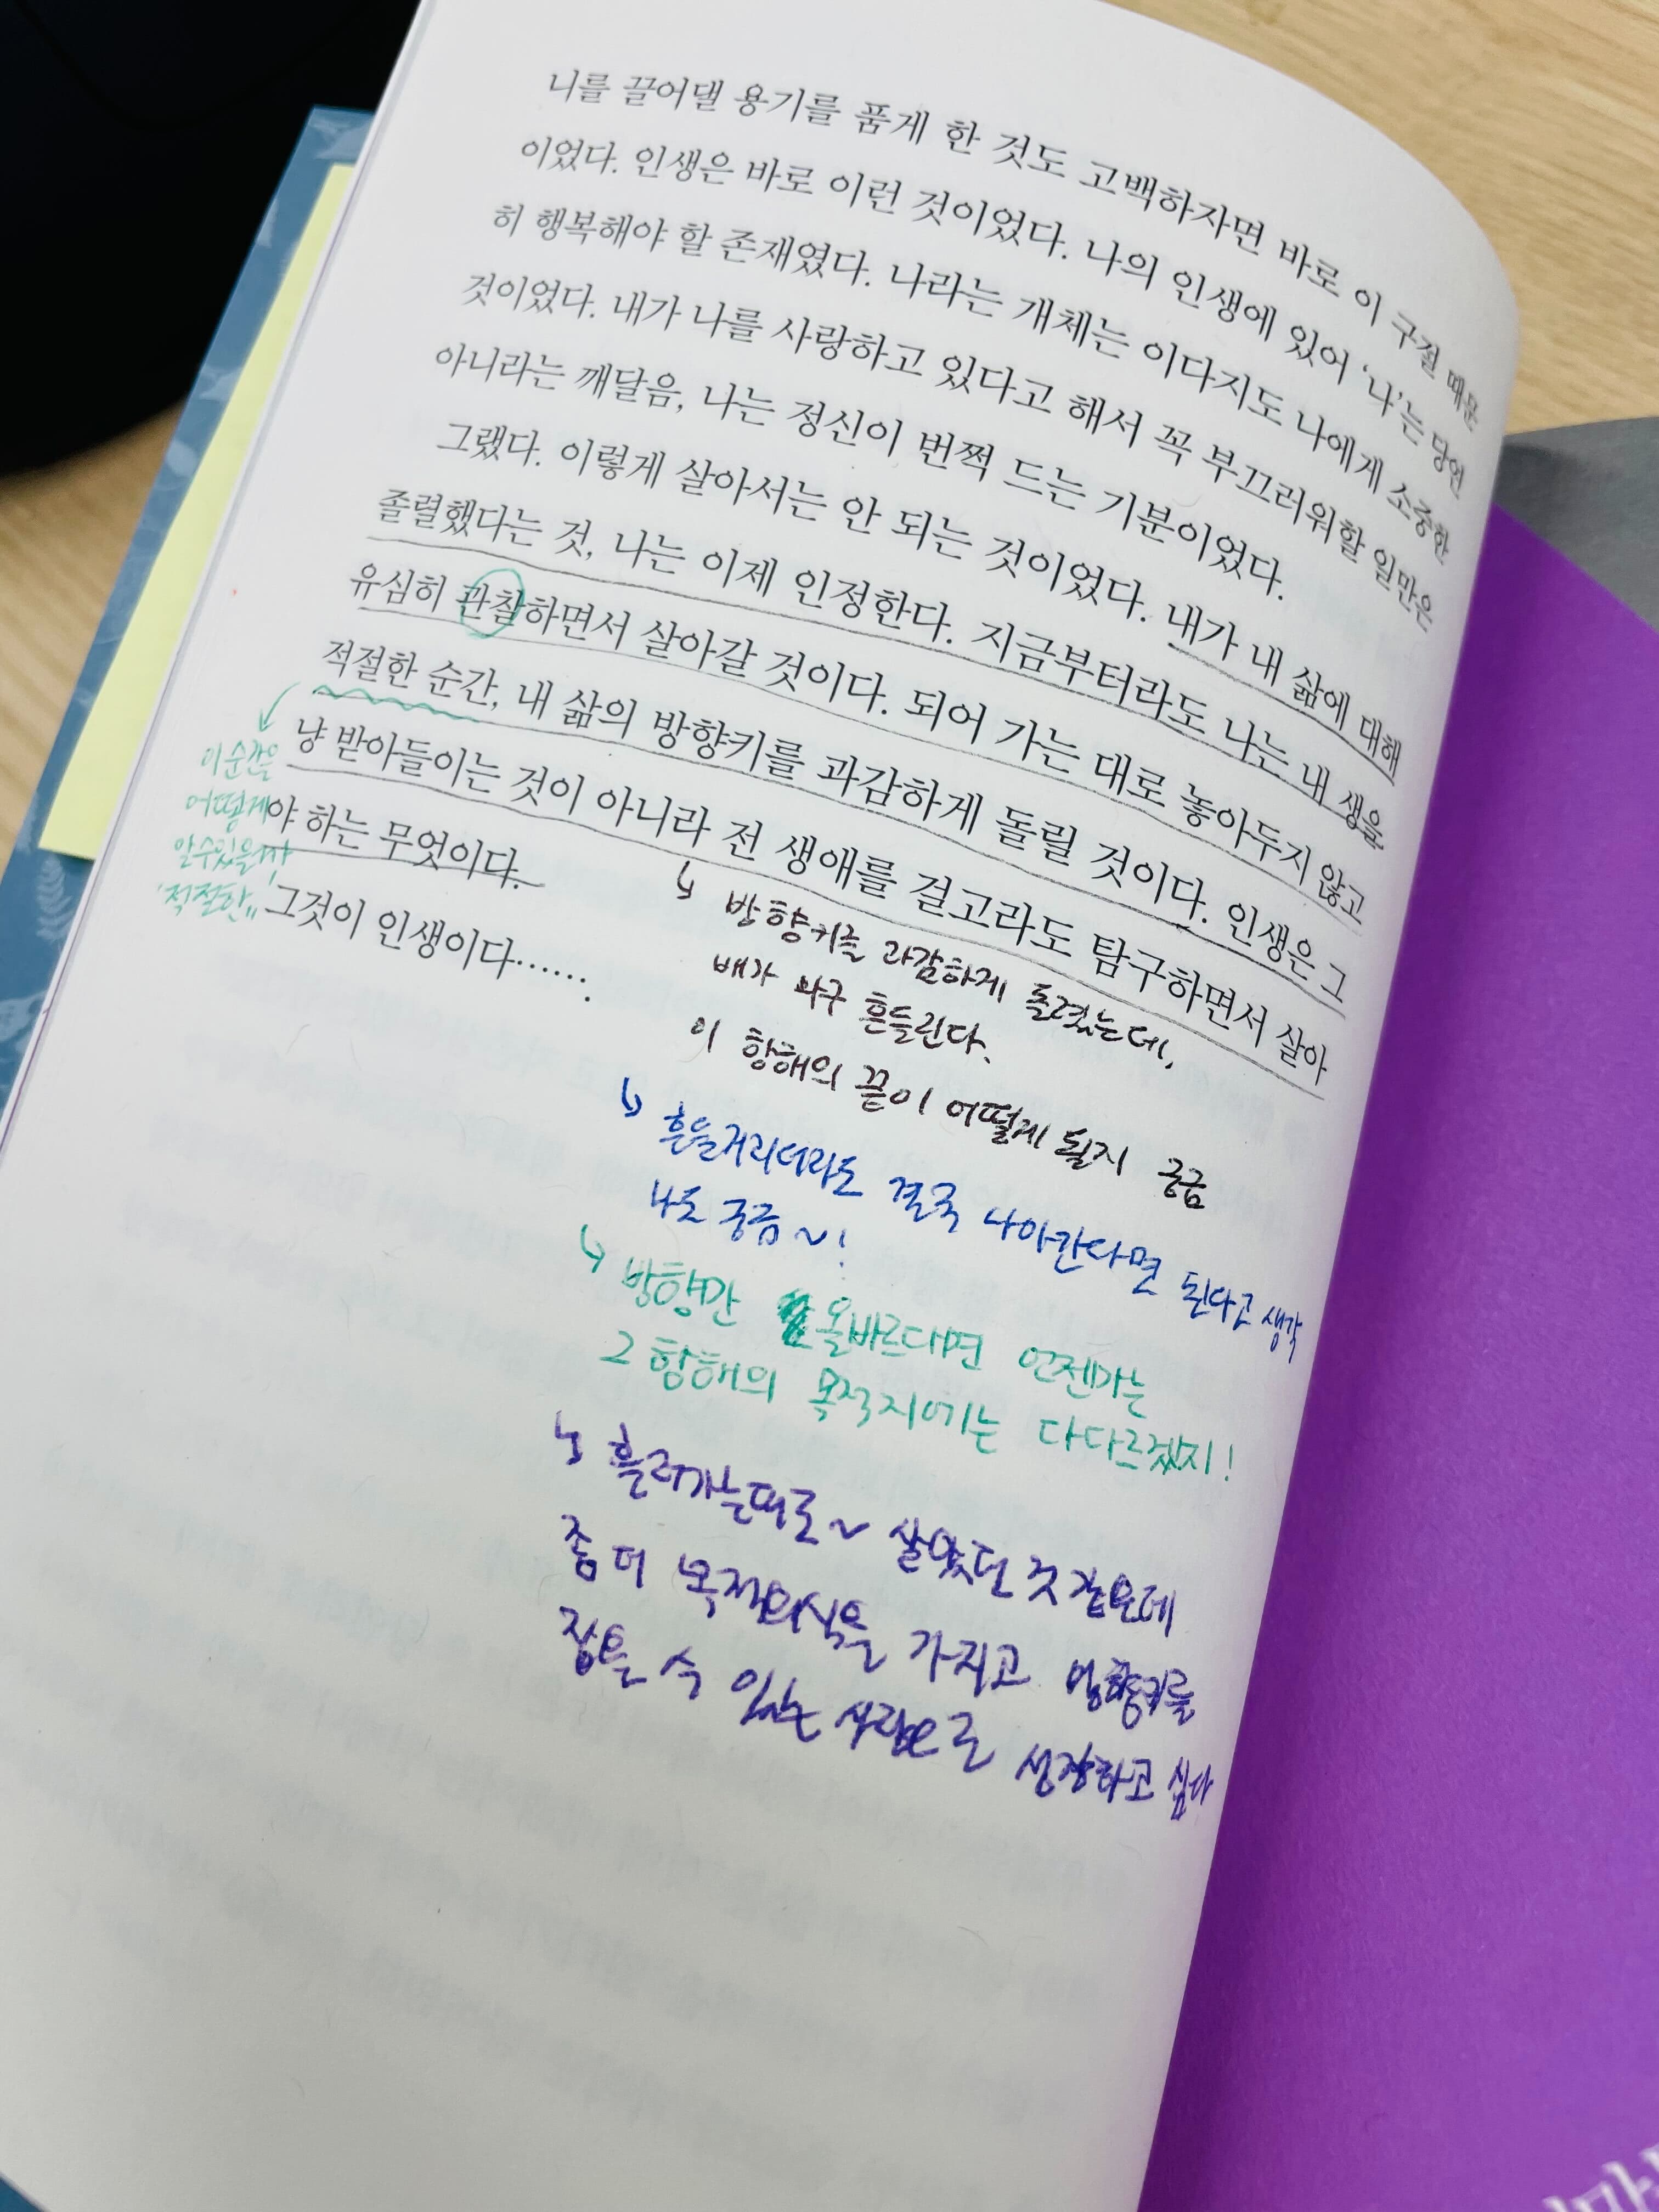 니를 끌어댈 용기를 품게 한 것도 고백하자면 바로 이 구절 때문
이었다. 인생은 바로 이런 것이었다. 나의 인생에 있어 ‘나’는 당연
히 행복해야 할 존재였다. 나라는 개체는 이다지도 나에게 소중한
것이었다. 내가 나를 사랑하고 있다고 해서 꼭 부끄러워할 일만은
아니라는 깨달음, 나는 정신이 번쩍 드는 기분이었다.
그랬다. 이렇게 살아서는 안 되는 것이었다. 내가 내 삶에 대해
졸렬했다는 것, 나는 이제 인정한다. 지금부터라도 나는 내 생을
유심히 관찰하면서 살아갈 것이다. 되어 가는 대로 놓아두지 않고
적절한 순간, 내 삶의 방향키를 과감하게 돌릴 것이다. 인생은 그
냥 받아들이는 것이 아니라 전 생애를 걸고라도 탐구하면서 살아
야 하는 무엇이다.
그것이 인생이다……
이 순간은
어떻게
알수있을까
"적절한"
방향키를 과감하게 돌렸는데,
배가 마구 흔들린다.
이 항해의 끝이 어떻게 될지 궁금
흔들거리더라도 결국 나아간다면 된다고 생각
나도 궁금~!
방향만 올바르다면 언젠가는
그 항해의 목적지에는 다다르겠지!
흘러가는대로~ 살았던 것 같은데
좀 더 목적의식을 가지고 방향키를
잡을 수 있는 사람으로 성장하고 싶다